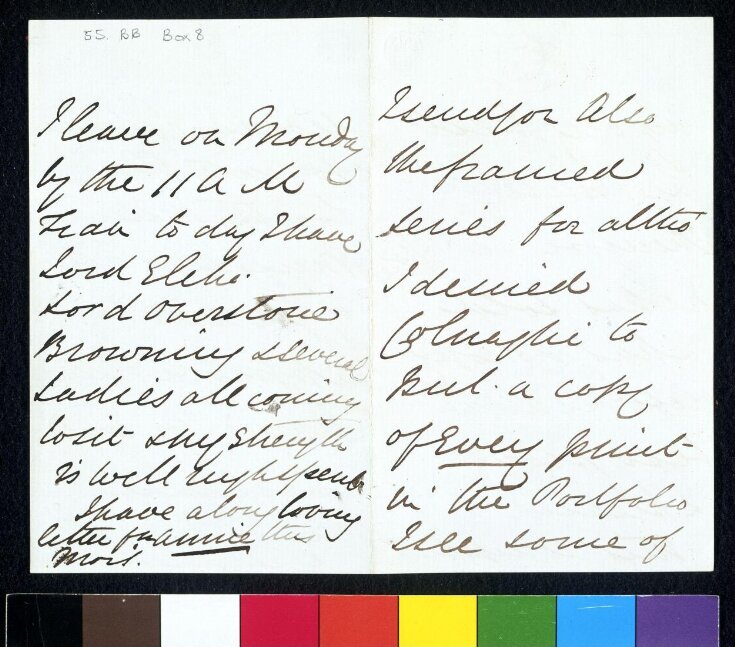 55. BB Box 8
I leave on Monday
by the 11 A M
Train to day I have
Lord Elcho.
Lord Overstone
Browning & several
Ladies all coming
to sit & my strength
is well nigh spent
I have a long loving
letter fm Annie this
Morg.
I send for Also
the framed
series for altho
I desired
Colnaghi to
put a copy
of Every print
in the Portfolio
I see some of